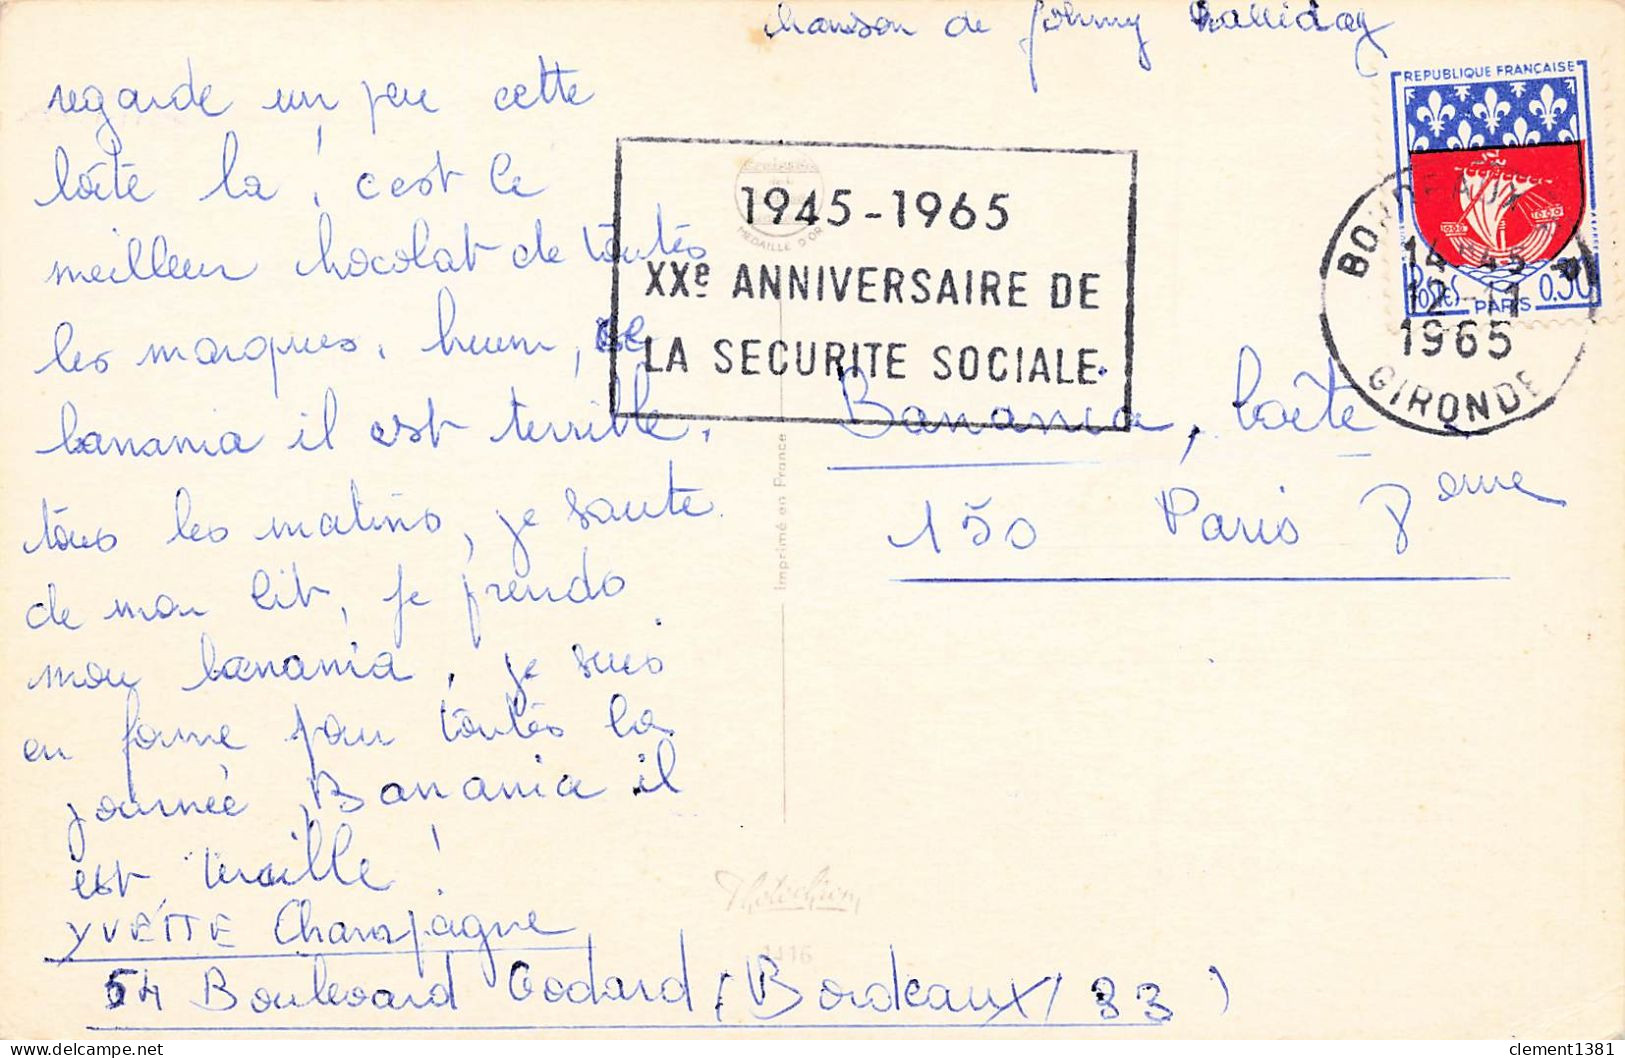 chanson de Johnny halliday
regarde un peu cette
boîte la, c'est le
meilleur chocolat de toutes
les marques. hum, le
banania il est terrible.
tous les matins, je saute
de mon lit, je prends
mon banania, je suis
en forme pour toutes la
journée, Banania il
est terrible!
YVETTE Champagne
54 Boulevard Godard (Bordeaux / 33)
1945-1965
XXe ANNIVERSAIRE DE
LA SECURITE SOCIALE
MEDAILLE D'OR
REPUBLIQUE FRANÇAISE
POSTES PARIS 0,30
BORDEAUX
14H45
12-11
1965
GIRONDE
Banania, boîte
150 Paris 8eme
Imprimé en France
Photochrom
1416
clement1381